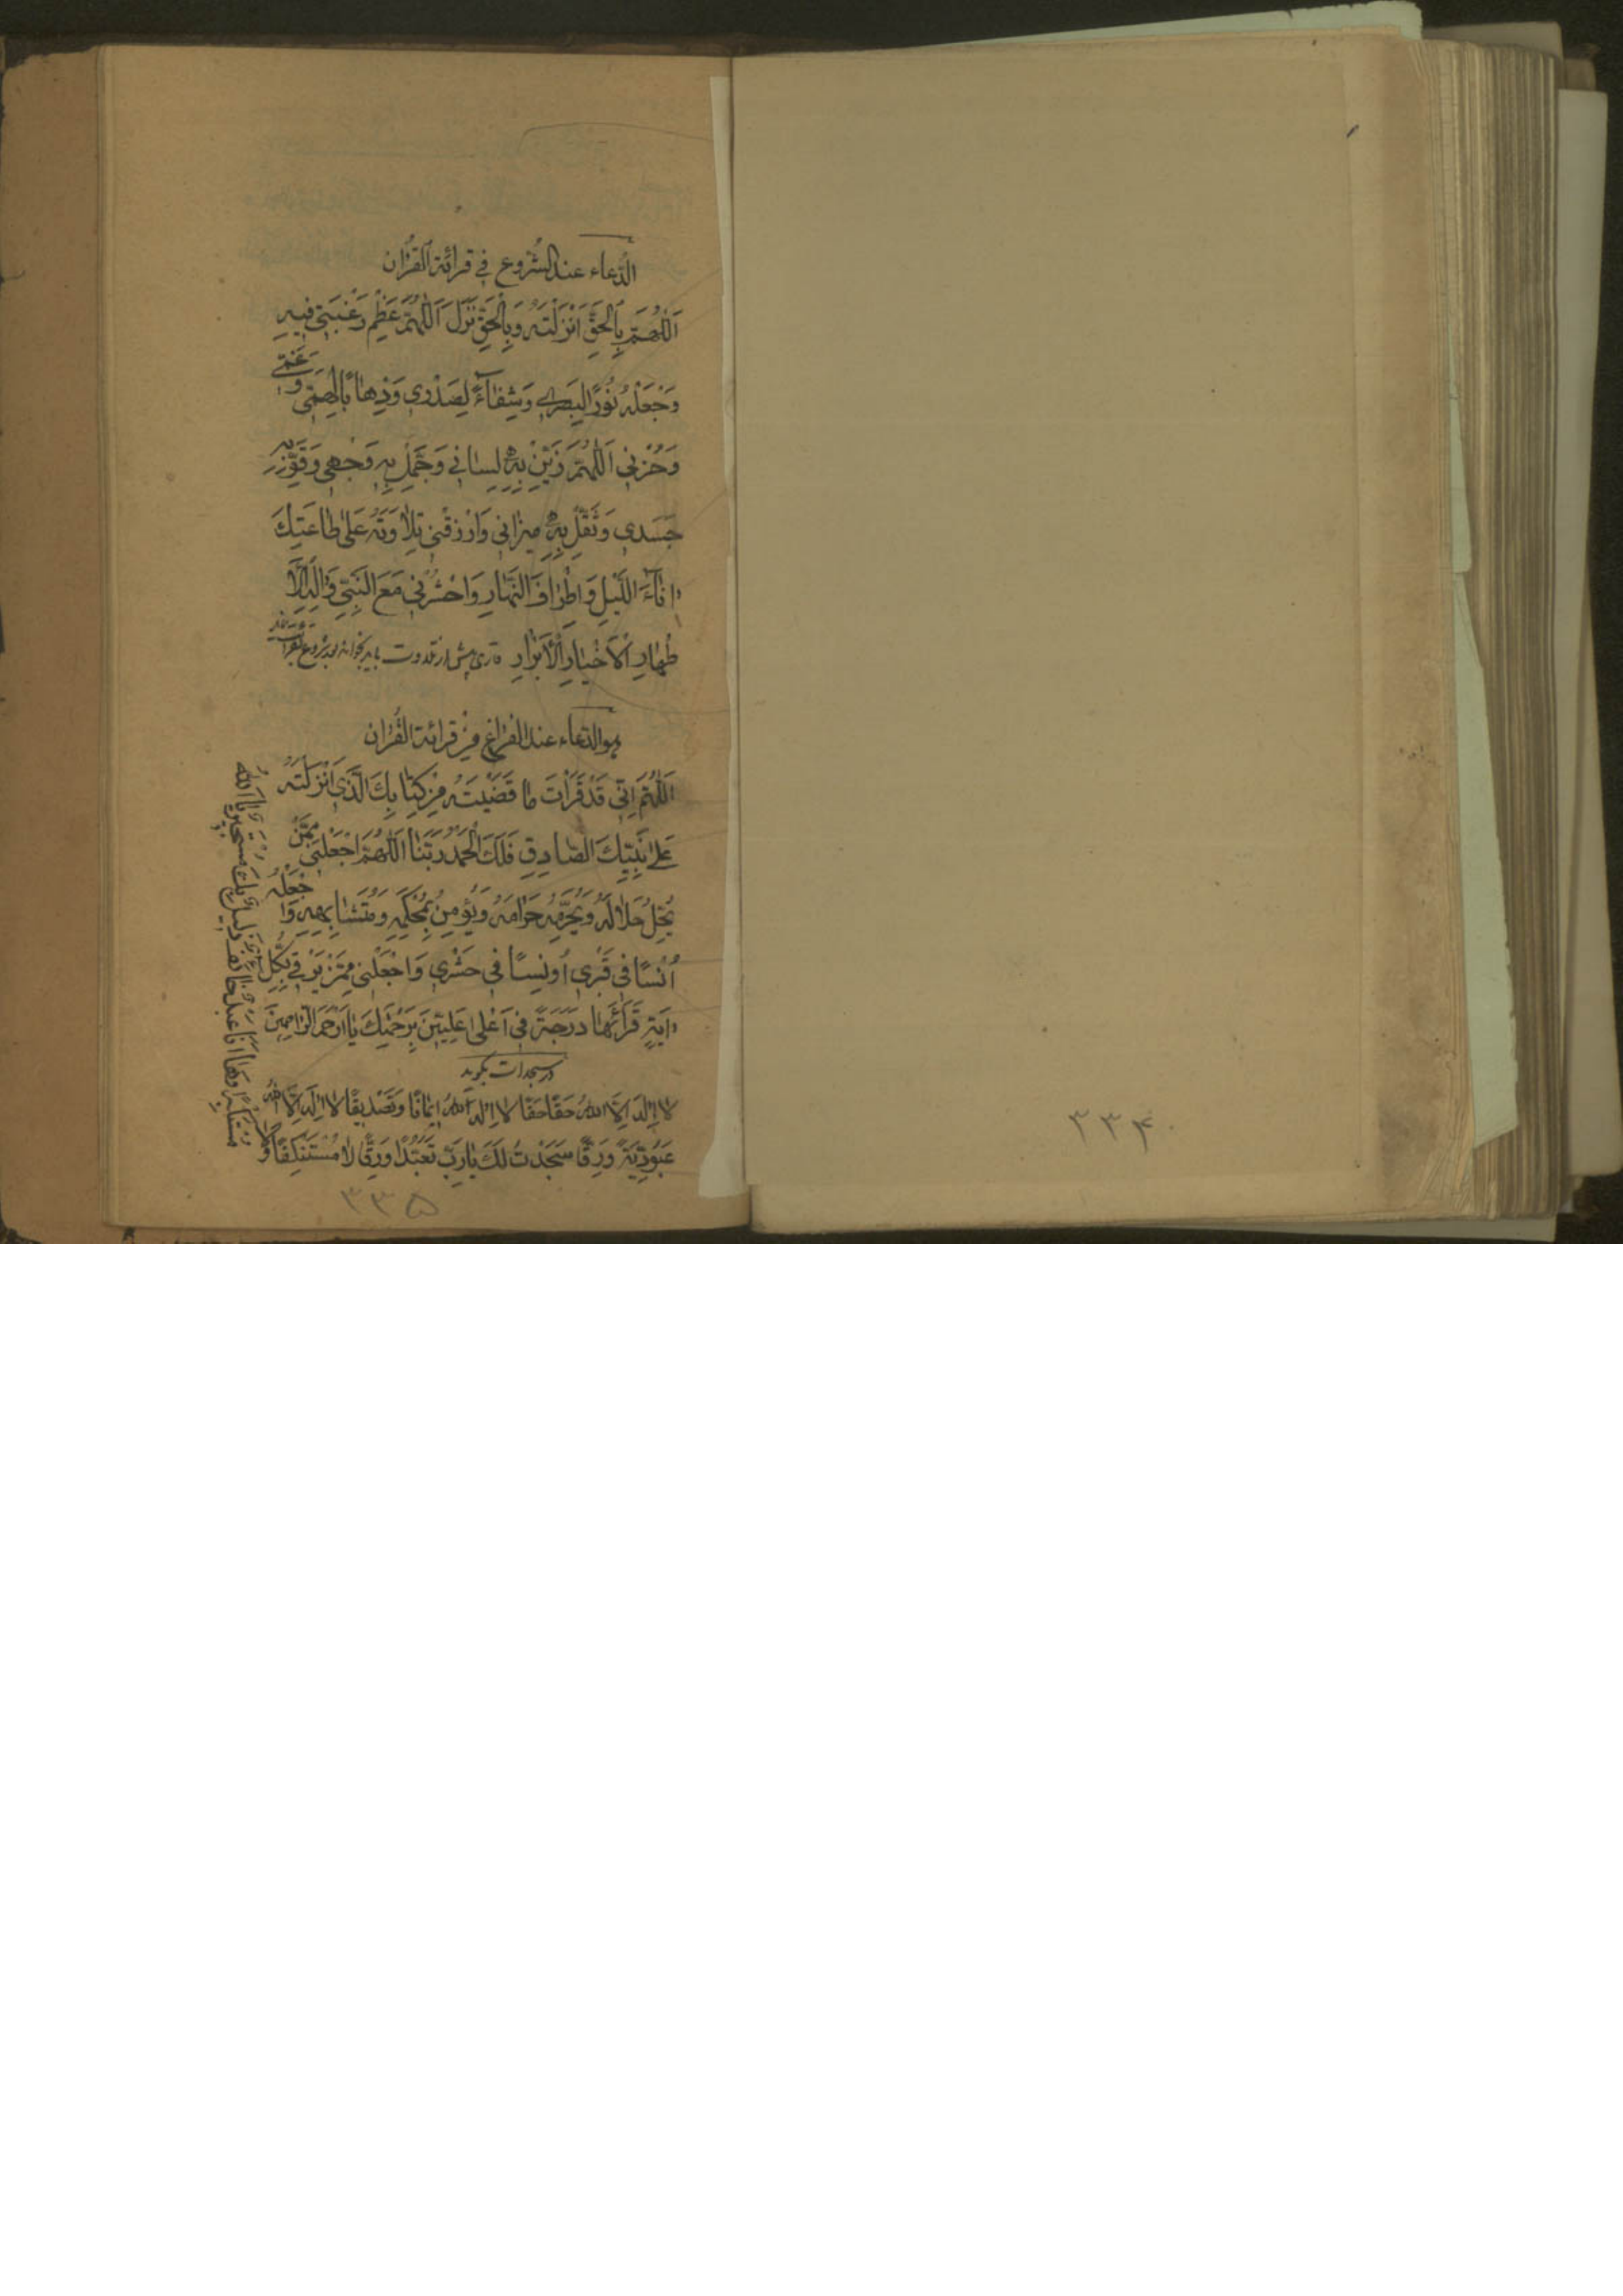 ۳۳۴
الدُّعاء عند الشُّروع في قرائة القُرْان
اَللّٰهُمَّ بِالْحَقِّ اَنْزَلْتَهُ وَبِالْحَقِّ نَزَلَ اَللّٰهُمَّ عَظِّمْ رَغْبَتِي فِيهِ
وَجْعَلْهُ نُورًا لِبَصَرِي وَشِفَآءً لِصَدْرِي وَذِهَابًا لِهَمِّي وَغَمِّي
وَحُزْنِي اَللّٰهُمَّ زَيِّنْ بِهِ لِسَانِي وَجَمِّلْ بِهِ وَجْهِي وَقَوِّ بِهِ
جَسَدِي وَثَقِّلْ بِهِ مِيزَانِي وَارْزُقْنِي تِلَاوَتَهُ عَلَى طَاعَتِكَ
انَآءَ اللَّيْلِ وَاَطْرَافَ النَّهَارِ وَاحْشُرْنِي مَعَ النَّبِيِّ وَالِهِ الْاَ
طْهَارِ الْاَخْيَارِ الْاَبْرَارِ قاری پیش از تلاوت باید بخواند بعد شروع
هو الدّعاء عند الفراغ من قرائة القُرْان
اَللّٰهُمَّ اِنِّي قَدْ قَرَأْتُ مَا قَضَيْتَهُ مِنْ كِتَابِكَ الَّذِي اَنْزَلْتَهُ
عَلَى نَبِيِّكَ الصَّادِقِ فَلَكَ الْحَمْدُ رَبَّنَا اَللّٰهُمَّ اجْعَلْنِي مِمَّنْ
يُحِلُّ حَلَالَهُ وَيُحَرِّمُ حَرَامَهُ وَيُؤْمِنُ بِمُحْكَمِهِ وَمُتَشَابِهِهِ وَاجْعَلْهُ
اُنْسًا فِي قَبْرِي اُونِسًا فِي حَشْرِي وَاجْعَلْنِي مِمَّنْ تُرْقِيهِ بِكُلِّ
ايَةٍ قَرَأَهَا دَرَجَةً فِي اَعْلَى عِلِّيِّينَ بِرَحْمَتِكَ يَا اَرْحَمَ الرَّاحِمِينَ
در سجدات بگوید
لَا اِلٰهَ اِلَّا اللهُ حَقًّا حَقًّا لَا اِلٰهَ اِلَّا اللهُ اِيمَانًا وَتَصْدِيقًا لَا اِلٰهَ اِلَّا اللهُ
عُبُودِيَّةً وَرِقًّا سَجَدْتُ لَكَ يَا رَبِّ تَعَبُّدًا وَرِقًّا لَا مُسْتَنْكِفًا وَلَا
مُسْتَكْبِرًا بَلْ اَنَا عَبْدٌ ذَلِيلٌ خَائِفٌ مُسْتَجِيرٌ يَا اَللهُ
۳۳۵